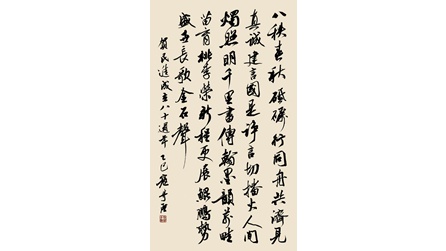 八秩春秋砥砺行同舟共濟見
真誠建言國是諍言切播火人間
燭照明千里書傳翰墨韻万畦
苗育桃李榮新程更展鯤鵬勢
盛世長歌金石聲
賀民進成立八十週年乙巳